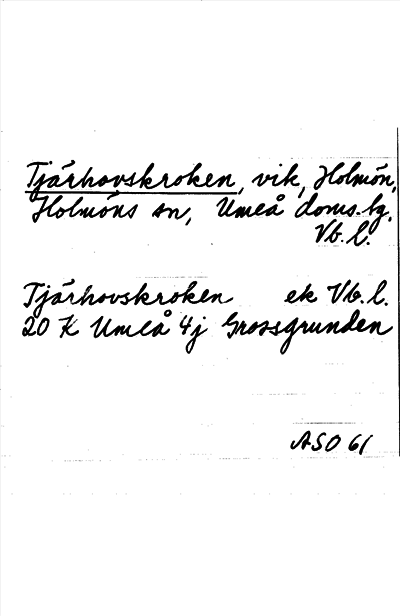 Tjärhovskroken, vik, Holmön,
Holmöns sn, Umeå doms.hg,
Vb. l.
Tjärhovskroken ek Vb. l.
20 K Umeå 4j Grossgrunden
ASO 61